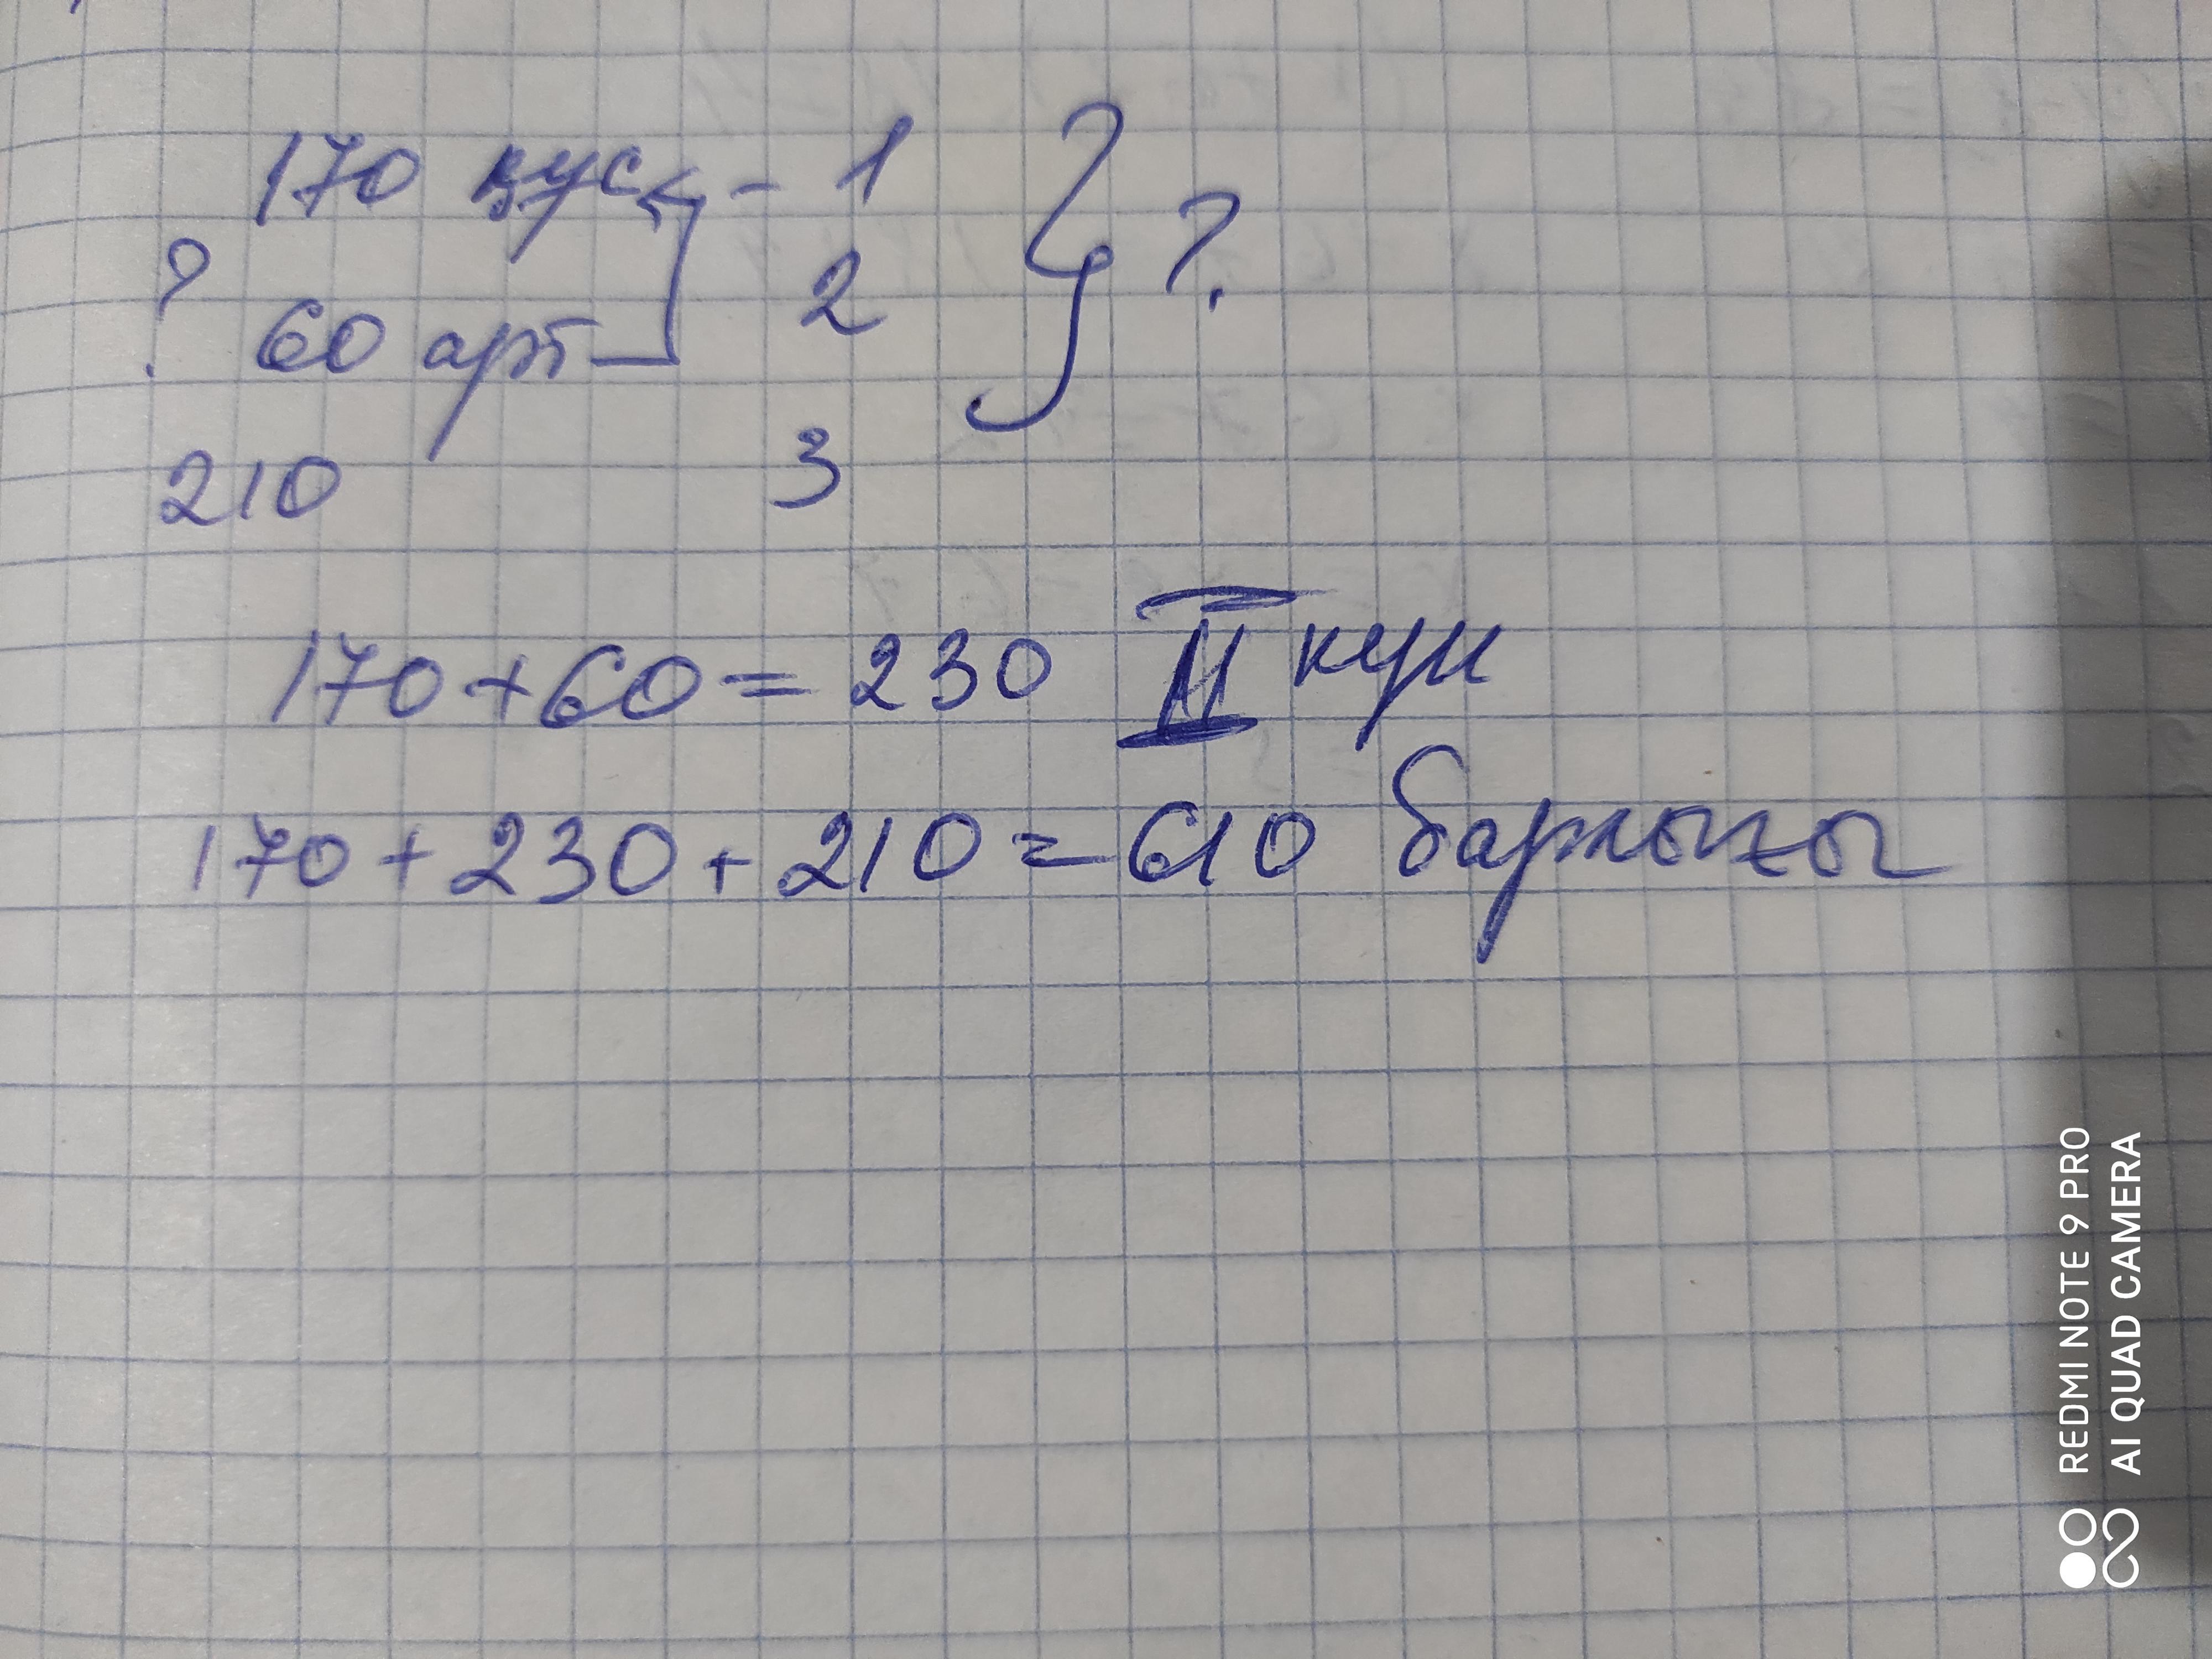 170 құс - 1 } ?
? 60 арт 2
210 3
170+60=230 II күн
170+230+210=610 барлығы
REDMI NOTE 9 PRO
AI QUAD CAMERA